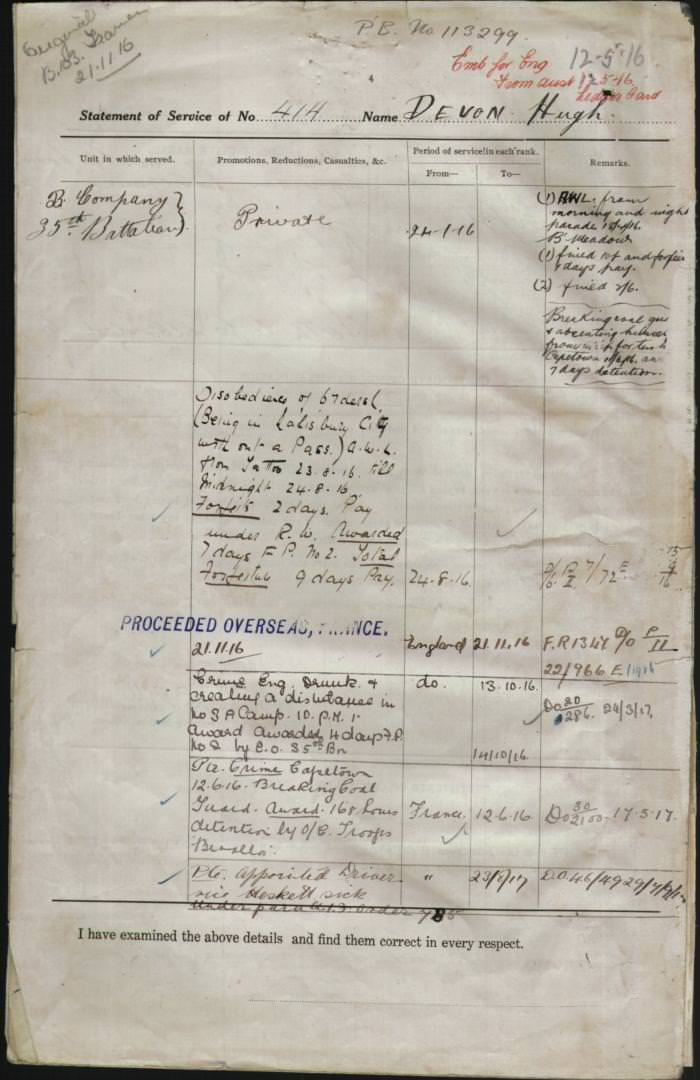 Original
B.103. France
21.11.16
P.E. No 113299.
Emb for Eng 12-5-16
From Aust 12.5.16.
Ledger Card
4
Statement of Service of No. 414 Name DEVON Hugh.
Unit in which served.
Promotions, Reductions, Casualties, &c.
Period of service in each rank.
From—
To—
Remarks.
B. Company }
35th Battalion }
Private
24-1-16
(1) AWL. from
morning and night
parade
B' Meadows
(1) fined 10/- and forfeit
7 days pay.
(2) fined 2/6.
Breaking coal
& absenting himself
from
Capetown
7 days detention.
Disobedience of
(Being in Salisbury City
with out a Pass.) A.W.L.
from Tattoo 23-8-16. till
Midnight 24-8-16
Forfeit 2 days. Pay
under R.W. Awarded
7 days F P. No 2. Total
Forfeiture 9 days Pay.
24-8-16.
PROCEEDED OVERSEAS, FRANCE.
21.11.16
England
21.11.16
F.R 1347
22/966 E
Crime Eng. Drunk &
creating a disturbance in
No 3 A Camp. 10. P.M.
Award Awarded 4 days F.P.
No 2 by C.O. 35th Bn
do.
13.10.16.
14/10/16.
DO 20/286. 24/3/17.
Pte. Crime Capetown
12.6.16. Breaking Coal
Guard. Award. 168 hours
detention by O/C. Troops
France.
12.6.16.
DO 30/2100. 17.5.17.
Pte. appointed Driver
vice Heskett sick
under para
"
23/5/17
D.O. 46/4929
I have examined the above details and find them correct in every respect.